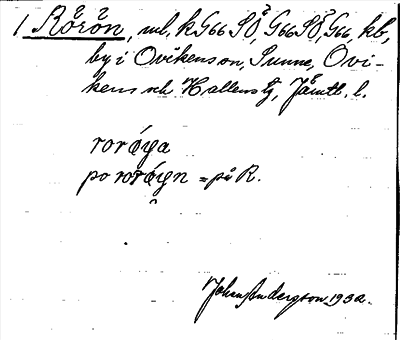 1 Rörön, ml, k G66 SÖ, G66 SÖ, G66 kb,
by i Ovikens sn, Sunne, Ovi-
kens och Hallens tg, Jämtl. l.
rorǿya
po rorǿyn = på R.
Johan Andersson 1932.